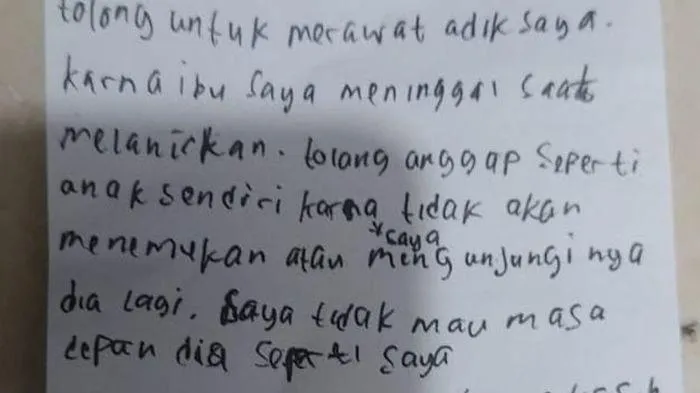 tolong untuk merawat adik saya.
karna ibu saya meninggal saat
melanirkan. tolong anggap seperti
anak sendiri karna tidak akan
*saya
menemukan atau mengunjungi nya
dia lagi. saya tidak mau masa
depan dia seperti saya